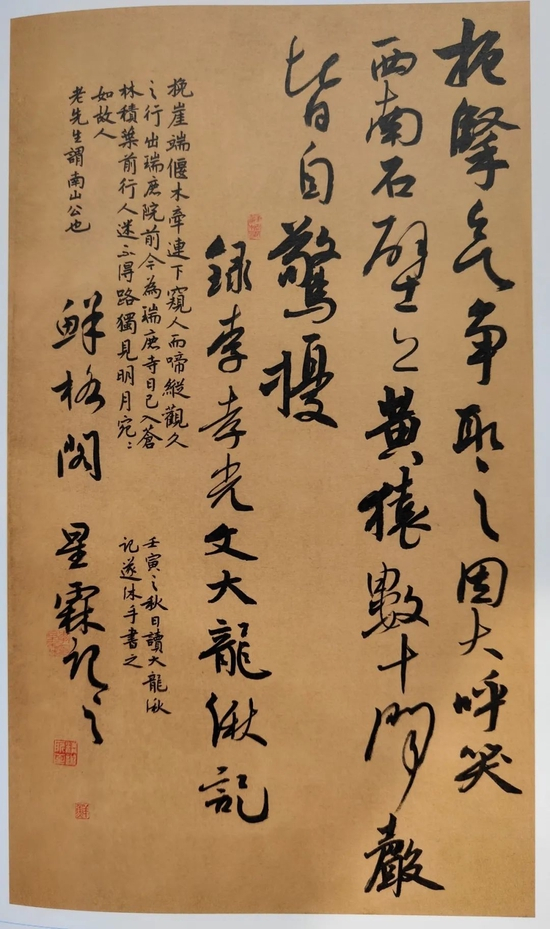 拖擥气争取之因大呼笑
西南石壁上黄猿數十闻聲
皆自驚擾
錄李孝光文大龍湫記
挽崖端偃木牽連下窺人而啼縱觀久
之行出瑞庶院前今為瑞庶寺日已入蒼
林積葉前行人迷不得路獨見明月宛〻
如故人
老先生謂南山公也
壬寅之秋日讀大龍湫
記遂休手書之
鲜格阁 星霖记之